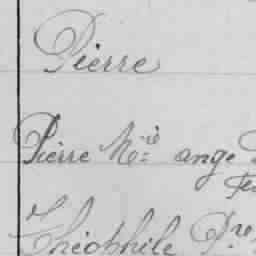 Pierre
Pierre M.ie ange
Théophile P.re